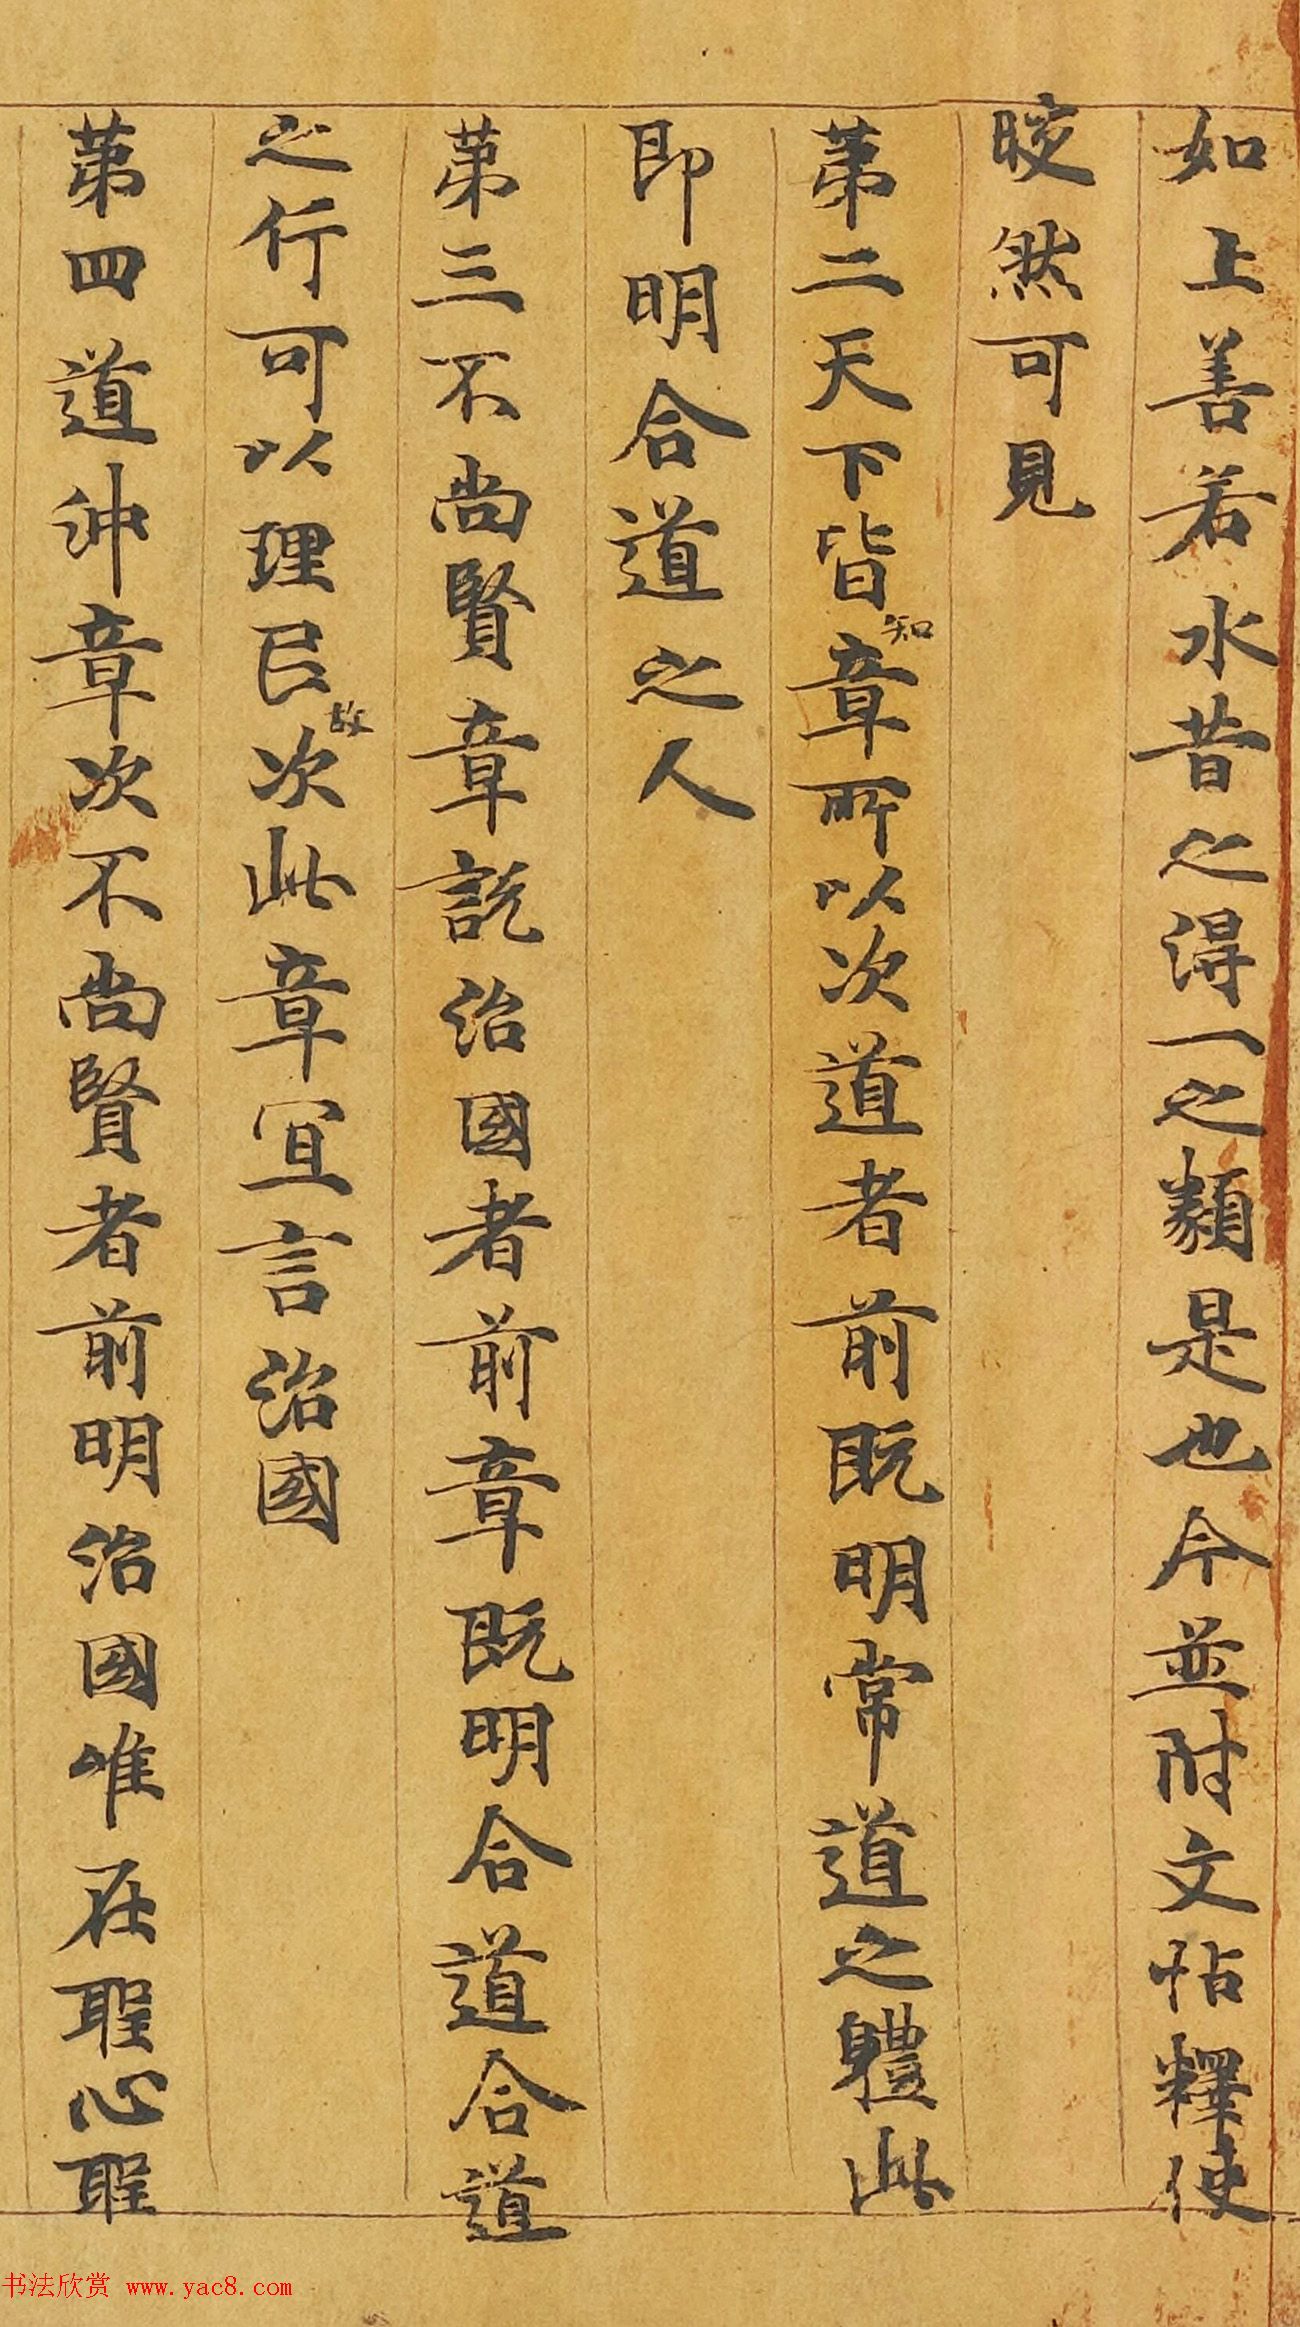 如上善若水昔之得一之類是也今並附文帖釋使
晈然可見
第二天下皆知章所以次道者前既明常道之體此
即明合道之人
第三不尚賢章說治國者前章既明合道合道
之行可以理民故次此章宜言治國
第四道沖章次不尚賢者前明治國唯在聖心聖
书法欣赏 www.yac8.com